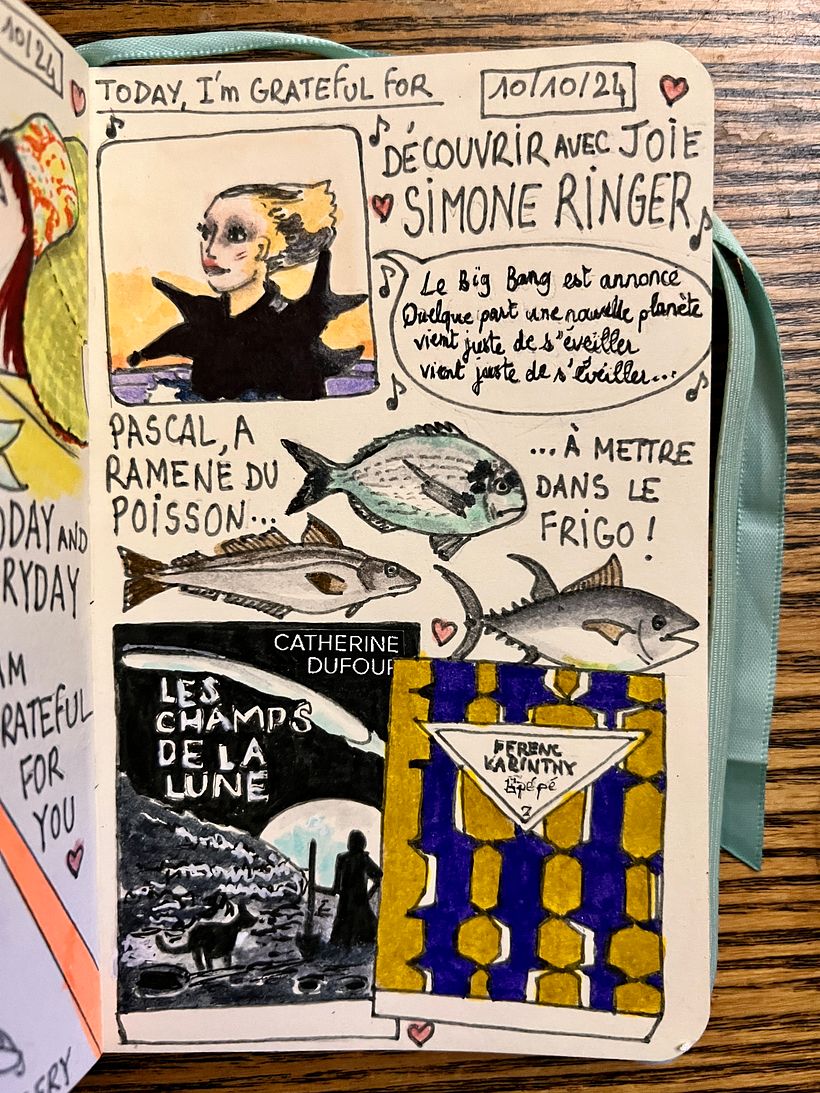 10/24
TODAY, I'm GRATEFUL FOR
10/10/24
DÉCOUVRIR AVEC JOIE
SIMONE RINGER
Le Big Bang est annoncé
Quelque part une nouvelle planète
vient juste de s'éveiller
vient juste de s'éveiller...
PASCAL, A
RAMENÉ DU
POISSON...
...À METTRE
DANS LE
FRIGO!
CATHERINE
DUFOUR
LES
CHAMPS
DE LA
LUNE
FERENC
KARINTHY
Épépé
Z
ODAY AND
RYDAY
AM
RATEFUL
FOR
YOU
ERY